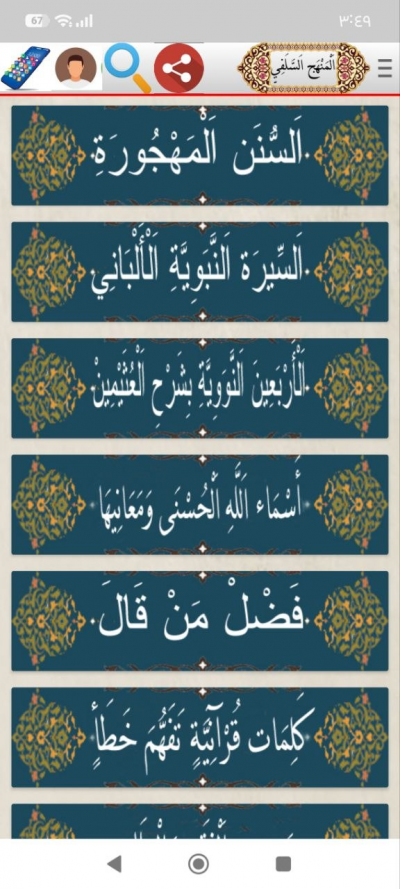 ٣:٤٩
67
المَنْهَج السَّلَفِي
اَلسُّنَن اَلْمَهْجُورَةِ
اَلسِّيرَة اَلنَّبَوِيَّةِ اَلْأَلْبَانِي
اَلْأَرْبَعِينَ اَلنَّوَوِيَّةِ بِشَرْحِ الْعُثَيْمِينْ
أَسْمَاء اَللَّهِ اَلْحُسْنَى وَمَعَانِيهَا
فَضْلْ مَنْ قَالَ
كَلِمَات قُرْآنِيَّةٍ تَفَهُّمَ خَطَأٍ